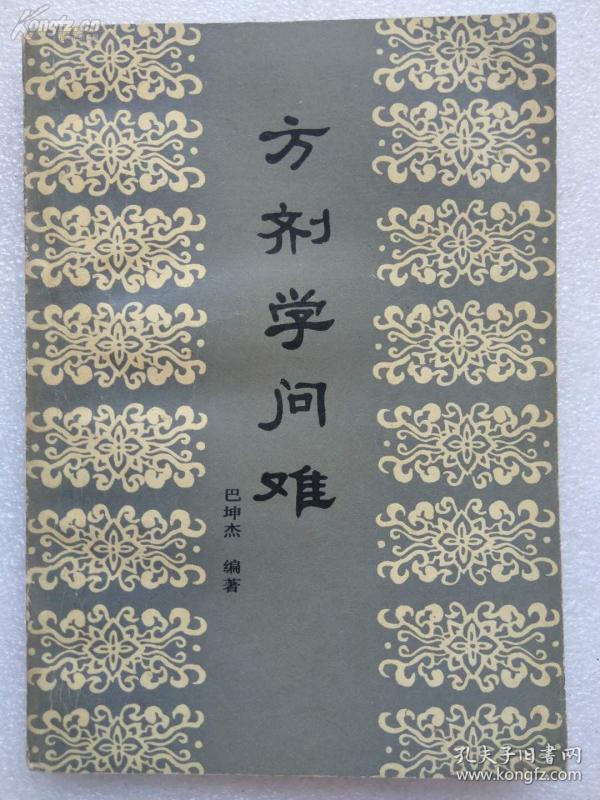 Kongfz.cn
方剂学问难
巴坤杰 编著
孔夫子旧書网
www.kongfz.com